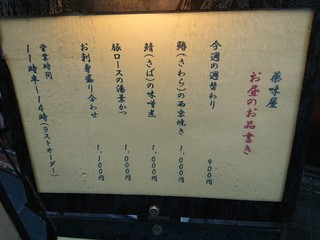 薬味屋
お昼のお品書き
今週の週替わり 900円
鰆(さわら)の西京焼き 1,000円
鯖(さば)の味噌煮 1,000円
豚ロースの湯葉かつ 1,000円
お刺身盛り合わせ 1,100円
営業時間
11時半~14時(ラストオーダー)